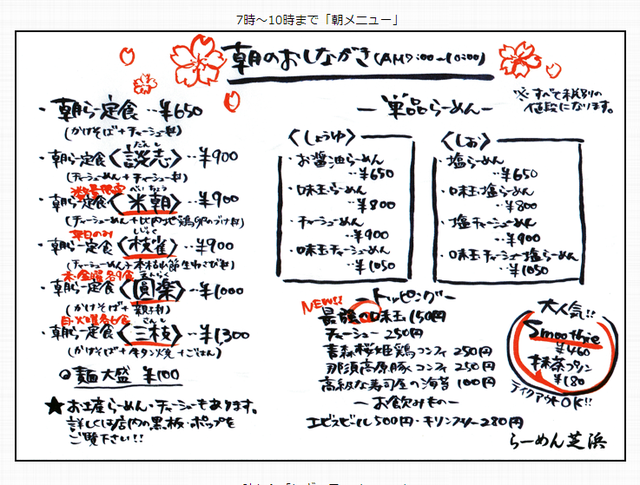 7時～10時まで「朝メニュー」
朝のおしながき(AM7:00～10:00)
※すべて税別の
値段になります。
・朝らー定食‥¥650
(かけそば+チャーシュー丼)
・朝らー定食〈談志〉‥¥900
だんし
(チャーシューめん+チャーシュー丼)
数量限定
べいちょう
・朝らー定食〈米朝〉‥¥900
(チャーシューめん+比内地鶏卵づけ丼)
平日のみ
しじゃく
・朝らー定食〈枝雀〉‥¥900
(チャーシューめん+本枯れ節生わさび丼)
木・金曜各9食
えんらく
・朝らー定食〈圓楽〉‥¥1000
(かけそば+親子丼)
月・火曜各6食
・朝らー定食〈三枝〉‥¥1,300
(かけそば+牛タン炙+ごはん)
◎麺大盛 ¥100
★お土産らーめん・チャーシューもあります。
詳しくは店内の黒板・ポップを
ご覧下さい!!
―単品らーめん―
〈しょうゆ〉
・お醤油らーめん
¥650
・味玉らーめん
¥800
・チャーシューめん
¥900
・味玉チャーシューめん
¥1050
〈しお〉
・塩らーめん
¥650
・味玉塩らーめん
¥800
・塩チャーシューめん
¥900
・味玉チャーシュー塩らーめん
¥1050
―トッピング―
NEW!!
最強の味玉 150円
チャーシュー 250円
青森桜姫鶏コンフィ 250円
那須高原豚コンフィ 250円
高級な寿司屋の海苔 100円
―お飲みもの―
エビスビール500円・キリンフリー280円
大人気!!
Smoothie
¥460
抹茶プリン
¥180
テイクアウトOK!!
らーめん芝浜